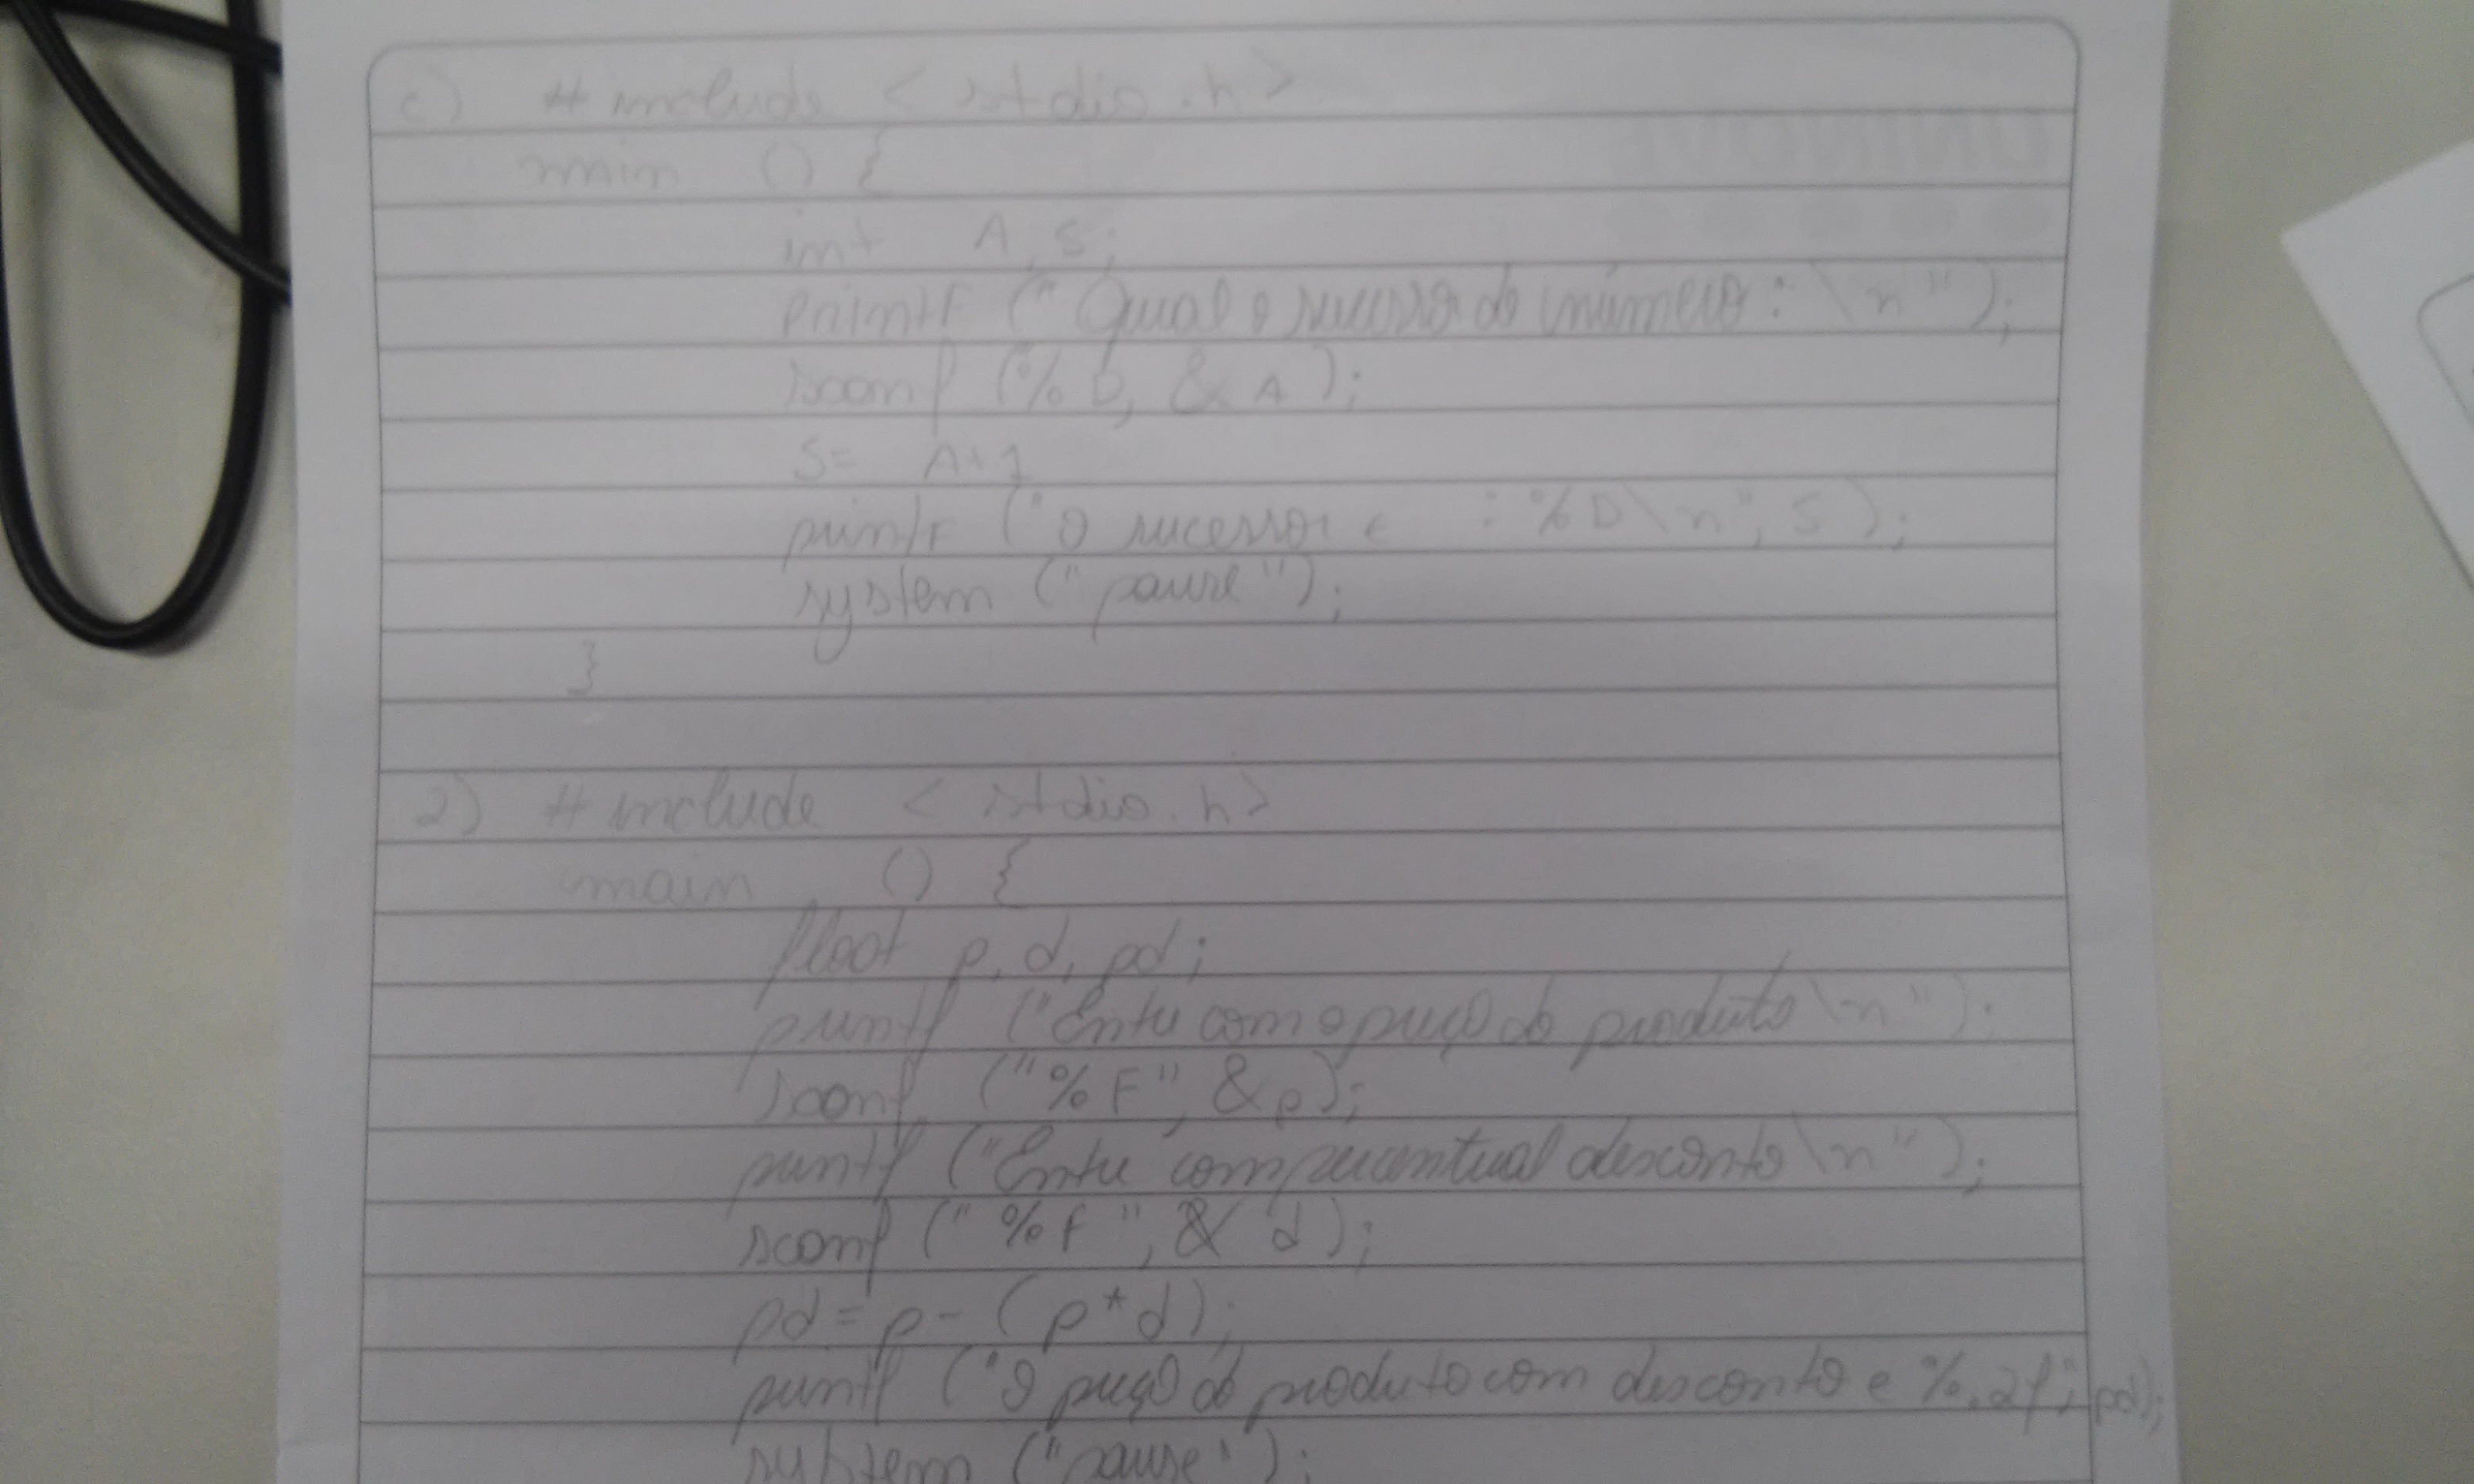 c) # include < stdio.h>
main () {
int A, S;
printF (" Qual o sucessor do número : \n " );
scanf ("% D, & A );
S= A+1
printF ("O sucessor e : % D \n", S );
system (" pause ");
}
2) # include < stdio.h>
main () {
float p, d, pd;
printf ("Entre com o preço do produto \n ");
scanf ("% F", &p);
printf ("Entre com percentual desconto \n ");
scanf (" %F ", & d );
pd = p - ( p * d);
printf ("O preço do produto com desconto e %.2f", pd);
system ("pause");
UNINOVE